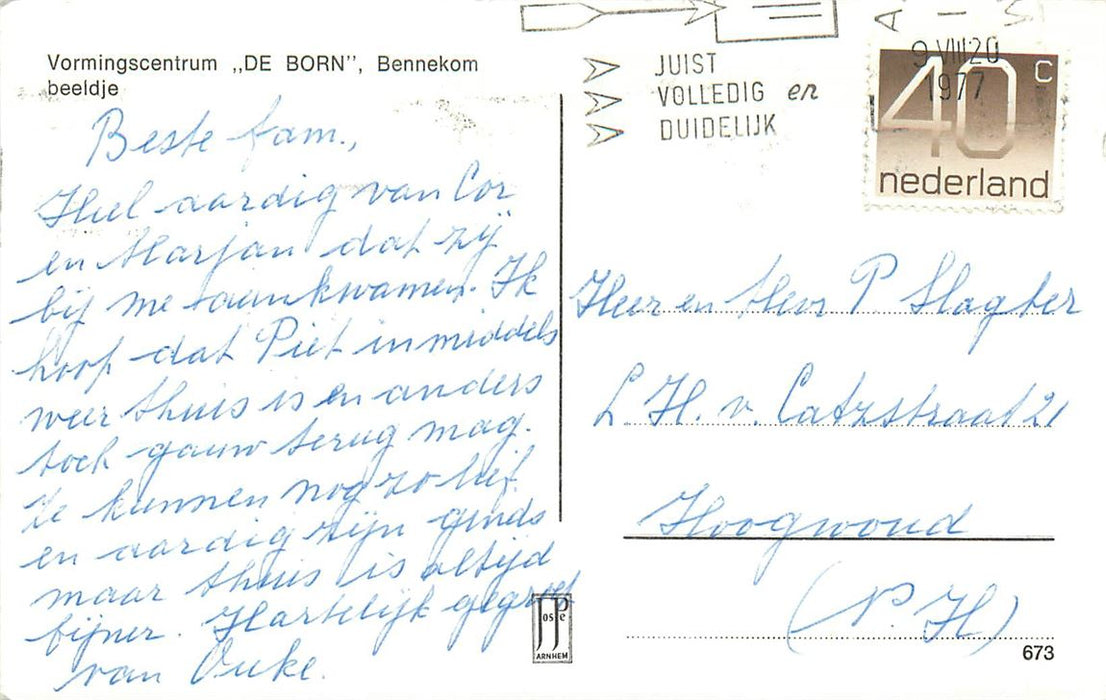 Vormingscentrum „DE BORN”, Bennekom
beeldje
Beste fam.,
Heel aardig van Cor
en Marjan dat zij
bij me aankwamen. Ik
hoop dat Piet inmiddels
weer thuis is en anders
toch gauw terug mag.
Ze kunnen nog zo lief
en aardig zijn ginds
maar thuis is altijd
fijner. Hartelijk gegroet
van
JUIST
VOLLEDIG en
DUIDELIJK
9 VIII 20
1977
40 c
nederland
Heer en Mevr P. Slagter
L. H. v. Catzstraat 21
Hoogwoud
(N. H)
JosPe
ARNHEM
673